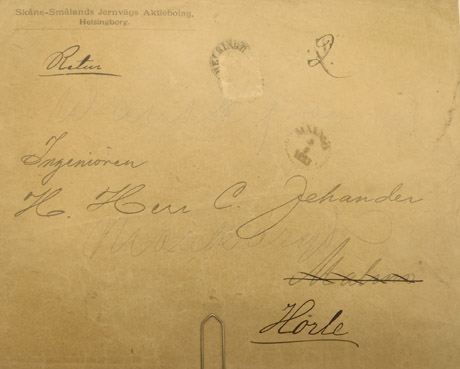 Skåne-Smålands Jernvägs Aktiebolag,
Helsingborg.
Retur
HELSINGB
MALMÖ
Ingeniören
H. Herr C. Jehander
Malmö
Hörle